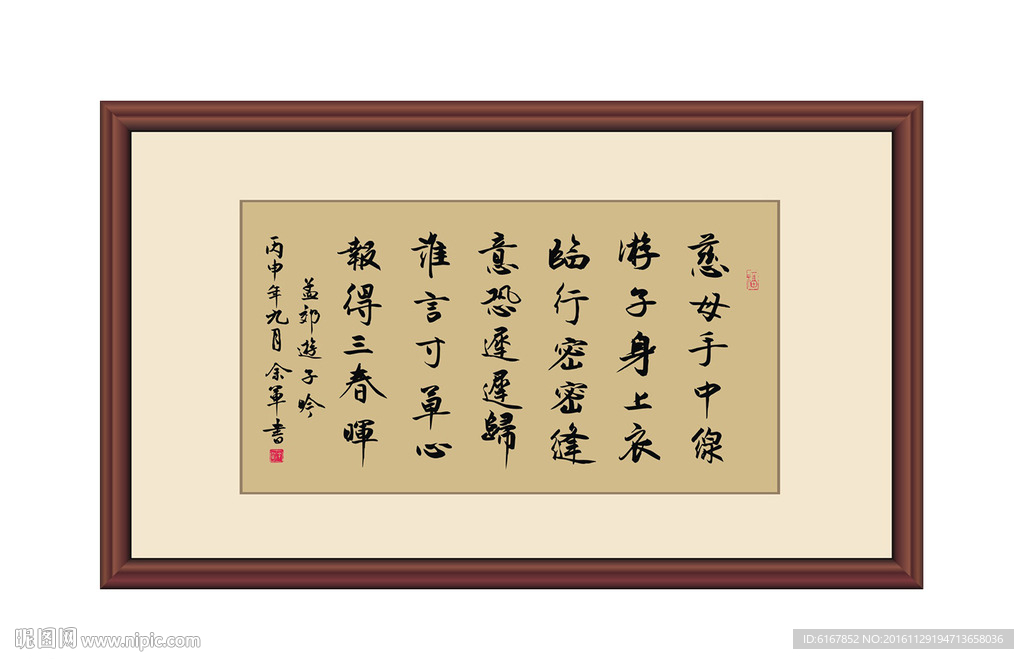 慈母手中線
游子身上衣
臨行密密縫
意恐遲遲歸
誰言寸草心
報得三春暉
孟郊遊子吟
丙申年九月 余軍書
昵图网 www.nipic.com
ID:6167852 NO:20161129194713658036